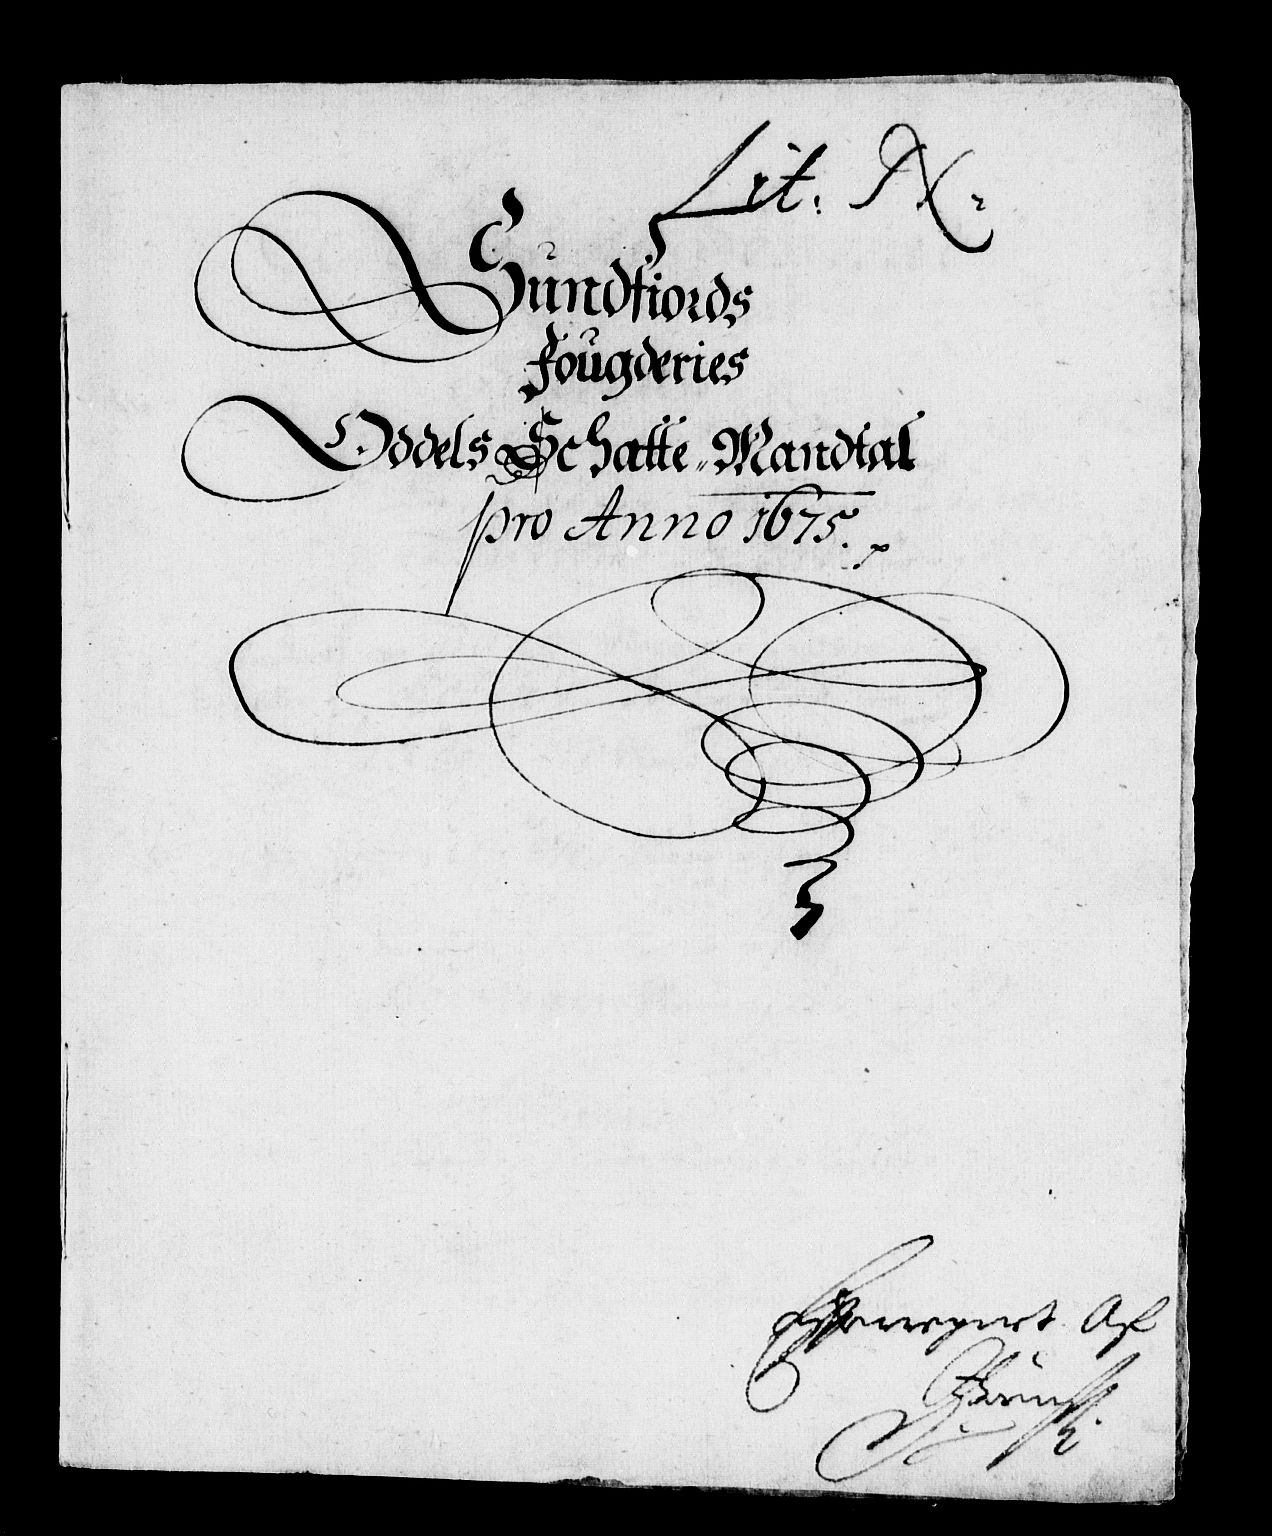 Lit. N.
Sundfiords
fougderies
Oddels Schatte Mandtal
pro Anno 1675.
Af